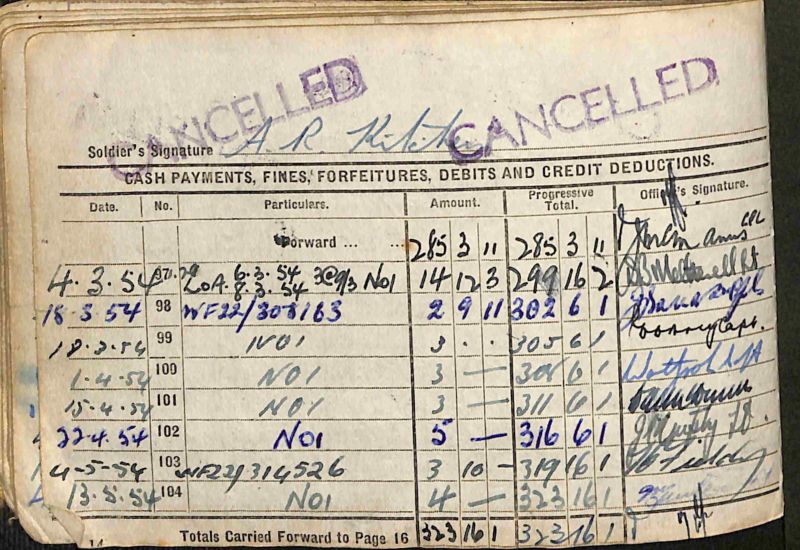 CANCELLED CANCELLED
Soldier's Signature A. R.
CASH PAYMENTS, FINES, FORFEITURES, DEBITS AND CREDIT DEDUCTIONS.
Date. No. Particulars. Amount. Progressive Total. Officer's Signature.
Forward ... ... 285 3 11 285 3 11
4.3.54 97 6.3.54 8.3.54 NO1 14 12 3 299 16 2
18.3.54 98 WF22/308163 2 9 11 302 6 1
18.3.54 99 NO1 3 . . 305 6 1 Capt.
1.4.54 100 NO1 3 — 308 6 1
15.4.54 101 NO1 3 — 311 6 1
22.4.54 102 NO1 5 — 316 6 1
4-5-54 103 WF22/314526 3 10 - 319 16 1
13.5.54 104 NO1 4 — 323 16 1
14 Totals Carried Forward to Page 16 323 16 1 323 16 1